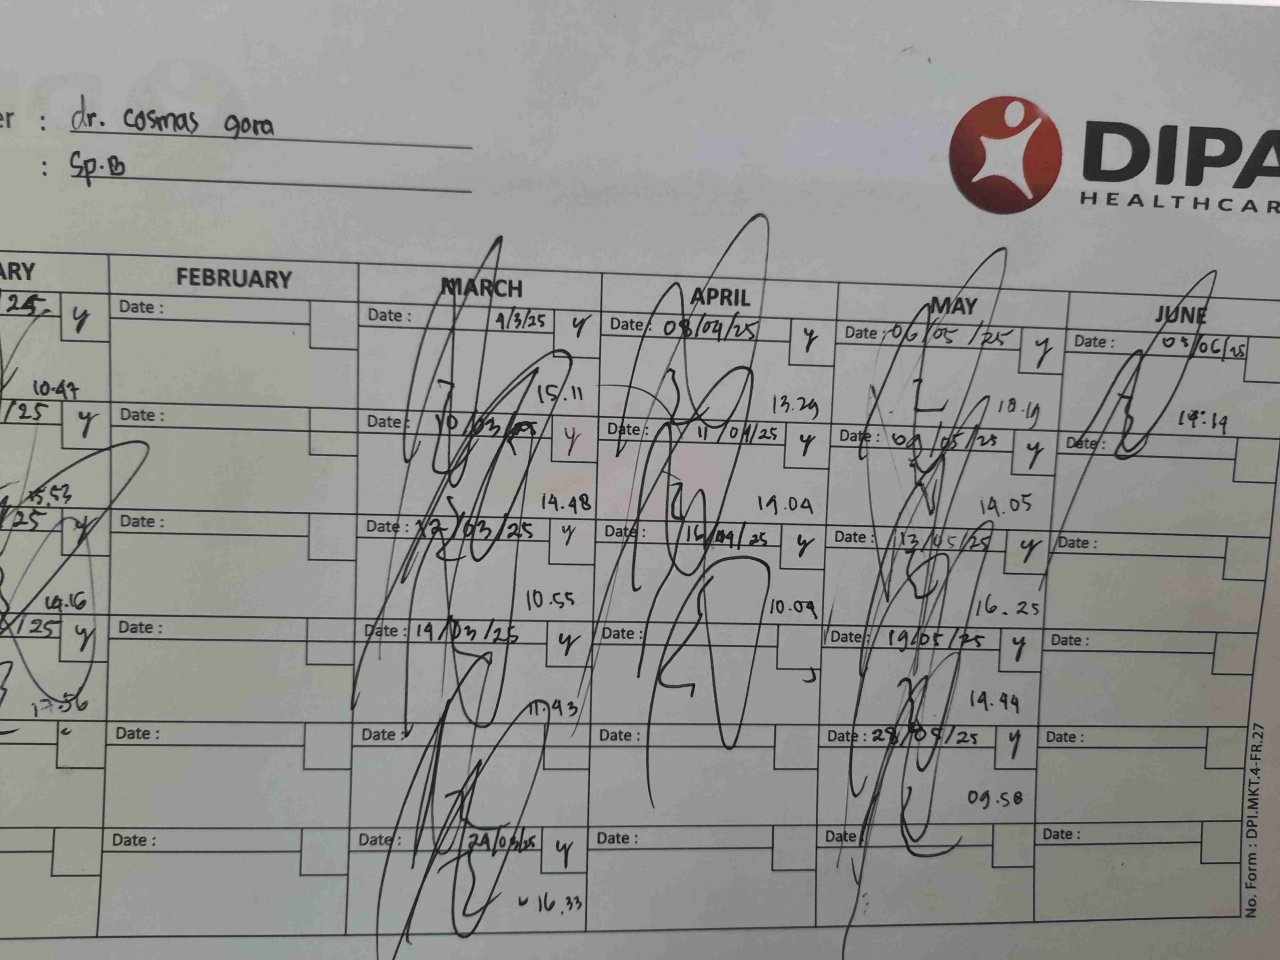 er : dr. cosmas gora
: Sp.B
DIPA
HEALTHCAR
ARY FEBRUARY MARCH APRIL MAY JUNE
/25 y Date : Date : 4/3/25 y Date : 08/04/25 y Date : 06/05/25 y Date : 03/06/25
10.47 15.11 13.29 18.19 14.14
/25 y Date : Date : 10/03/25 y Date : 11/04/25 y Date : 09/05/25 y Date :
15.53 14.48 14.04 14.05
/25 y Date : Date : 12/03/25 y Date : 16/04/25 y Date : 13/05/25 y Date :
14.16 10.55 10.09 16.25
/25 y Date : Date : 19/03/25 y Date : Date : 19/05/25 y Date :
17.56 11.43 14.44
Date : Date : Date : Date : 28/05/25 y Date :
09.58
Date : Date : 24/03/25 y Date : Date : Date :
16.33
No. Form : DPI.MKT.4-FR.27